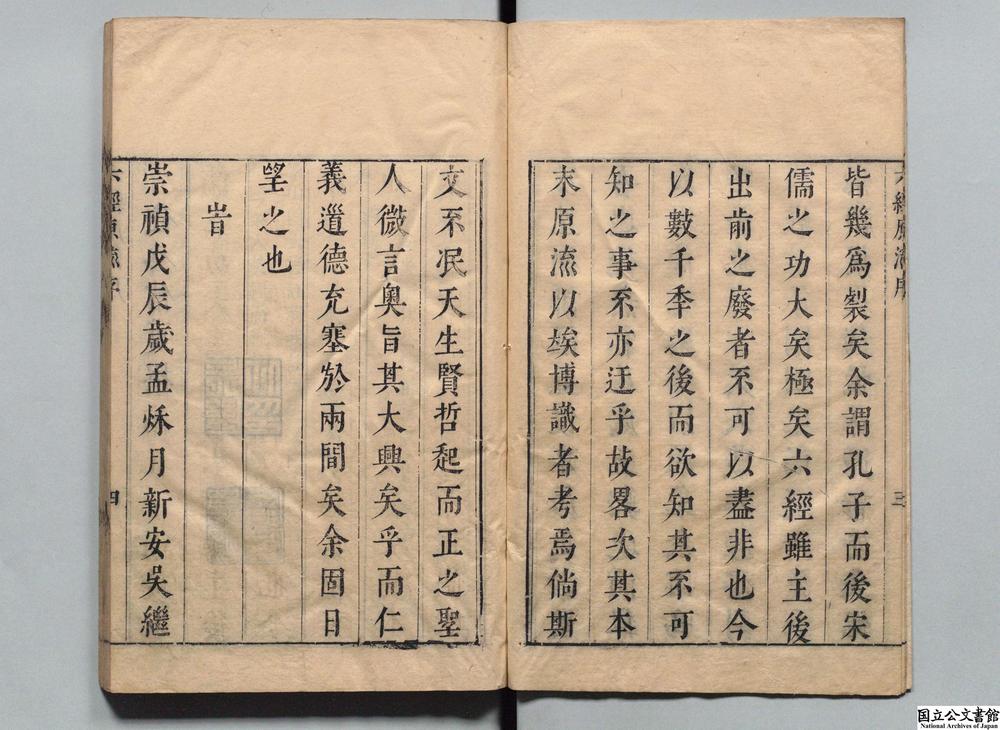 皆幾爲製矣余謂孔子而後宋
儒之功大矣極矣六經雖主後
出前之廢者不可以盡非也今
以數千季之後而欲知其不可
知之事不亦迂乎故畧次其本
末原流以俟博識者考焉倘斯
文不泯天生賢哲起而正之聖
人微言奧旨其大興矣乎而仁
義道德充塞於兩間矣余固日
望之也
旹
崇禎戊辰歲孟秌月新安吳繼
六經原流序
三
六經原流序
四
国立公文書館
National Archives of Japan